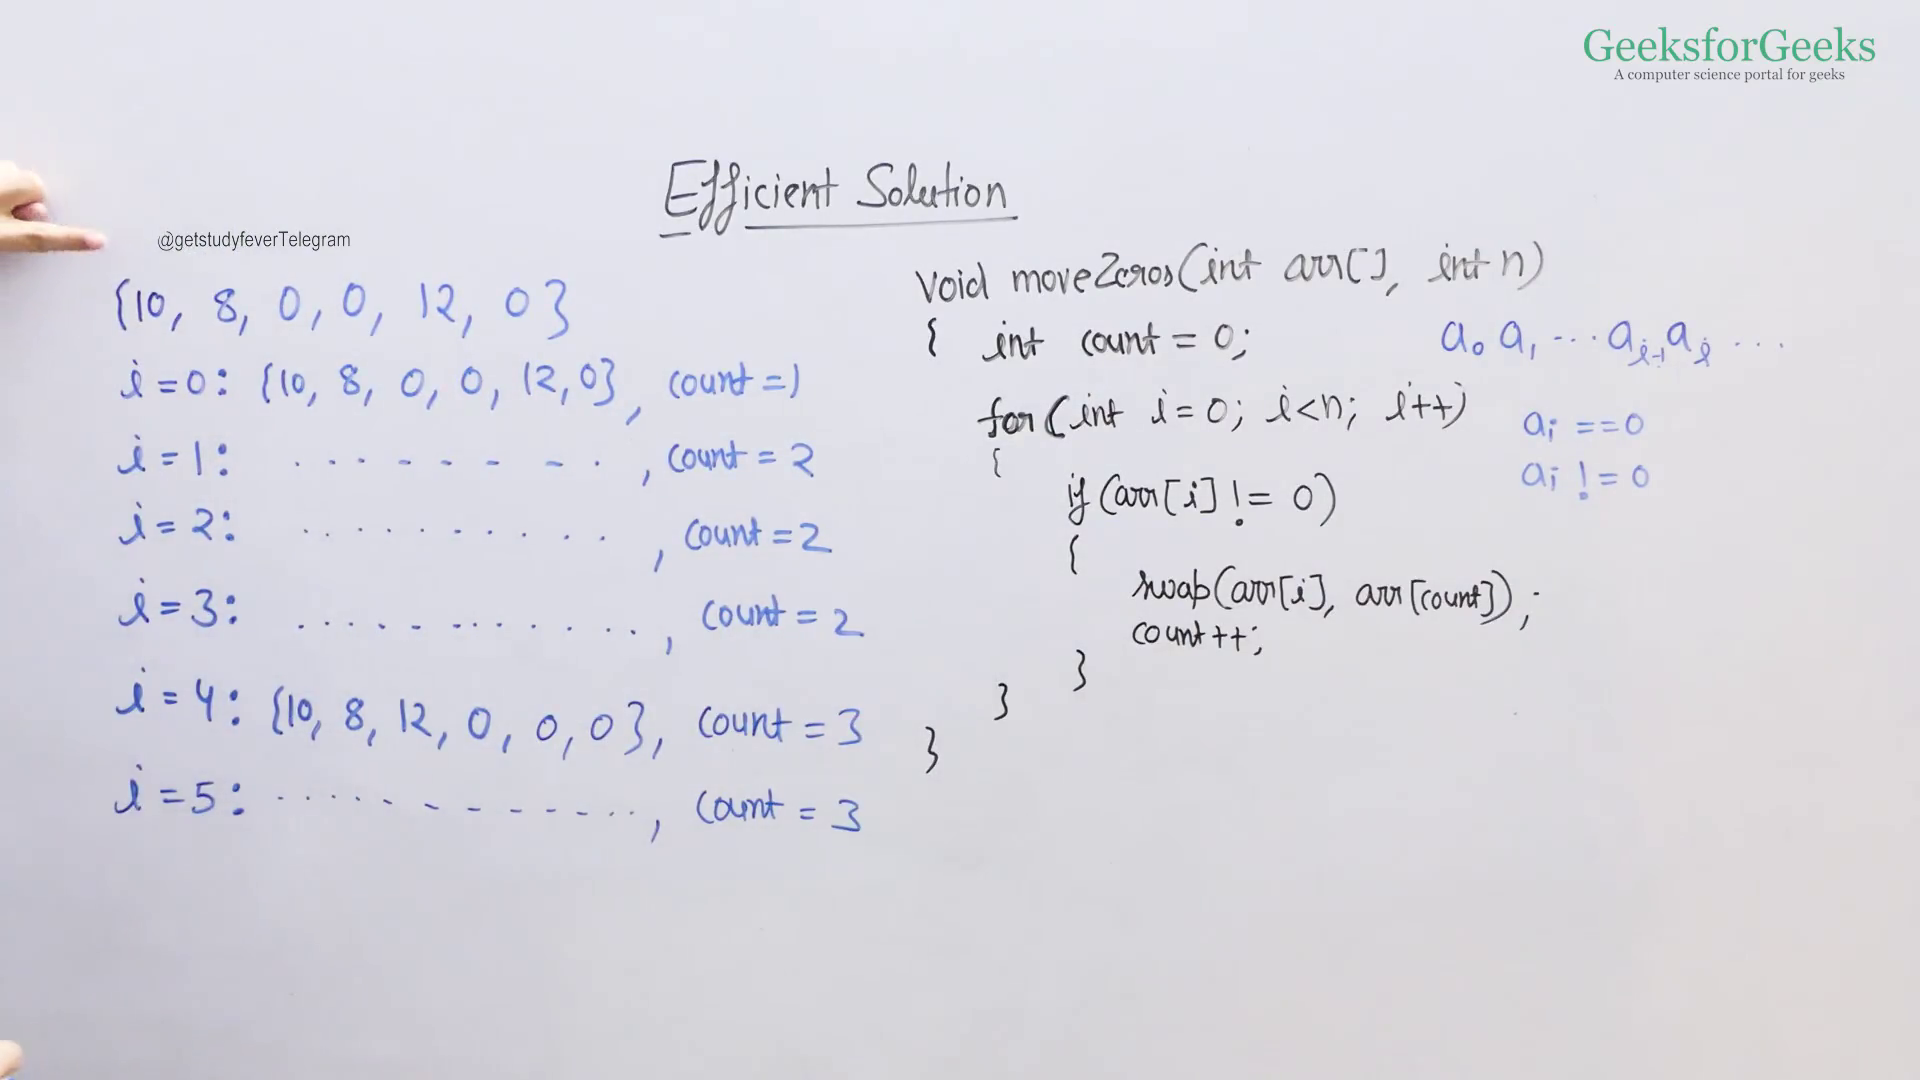 GeeksforGeeks
A computer science portal for geeks
Efficient Solution
@getstudyfeverTelegram
{10, 8, 0, 0, 12, 0}
i=0: {10, 8, 0, 0, 12, 0}, count=1
i=1: . . . . . . . ., count=2
i=2: . . . . . . . . ., count=2
i=3: . . . . . . . . . . . ., count=2
i=4: {10, 8, 12, 0, 0, 0}, count=3
i=5: . . . . . - - - - - - . . ., count=3
void moveZeros(int arr[], int n)
{ int count = 0;
for(int i=0; i<n; i++)
{
if (arr[i] != 0)
{
swap(arr[i], arr[count]);
count++;
}
}
}
a₀ a₁ ... aᵢ₋₁ aᵢ ...
aᵢ ==0
aᵢ != 0